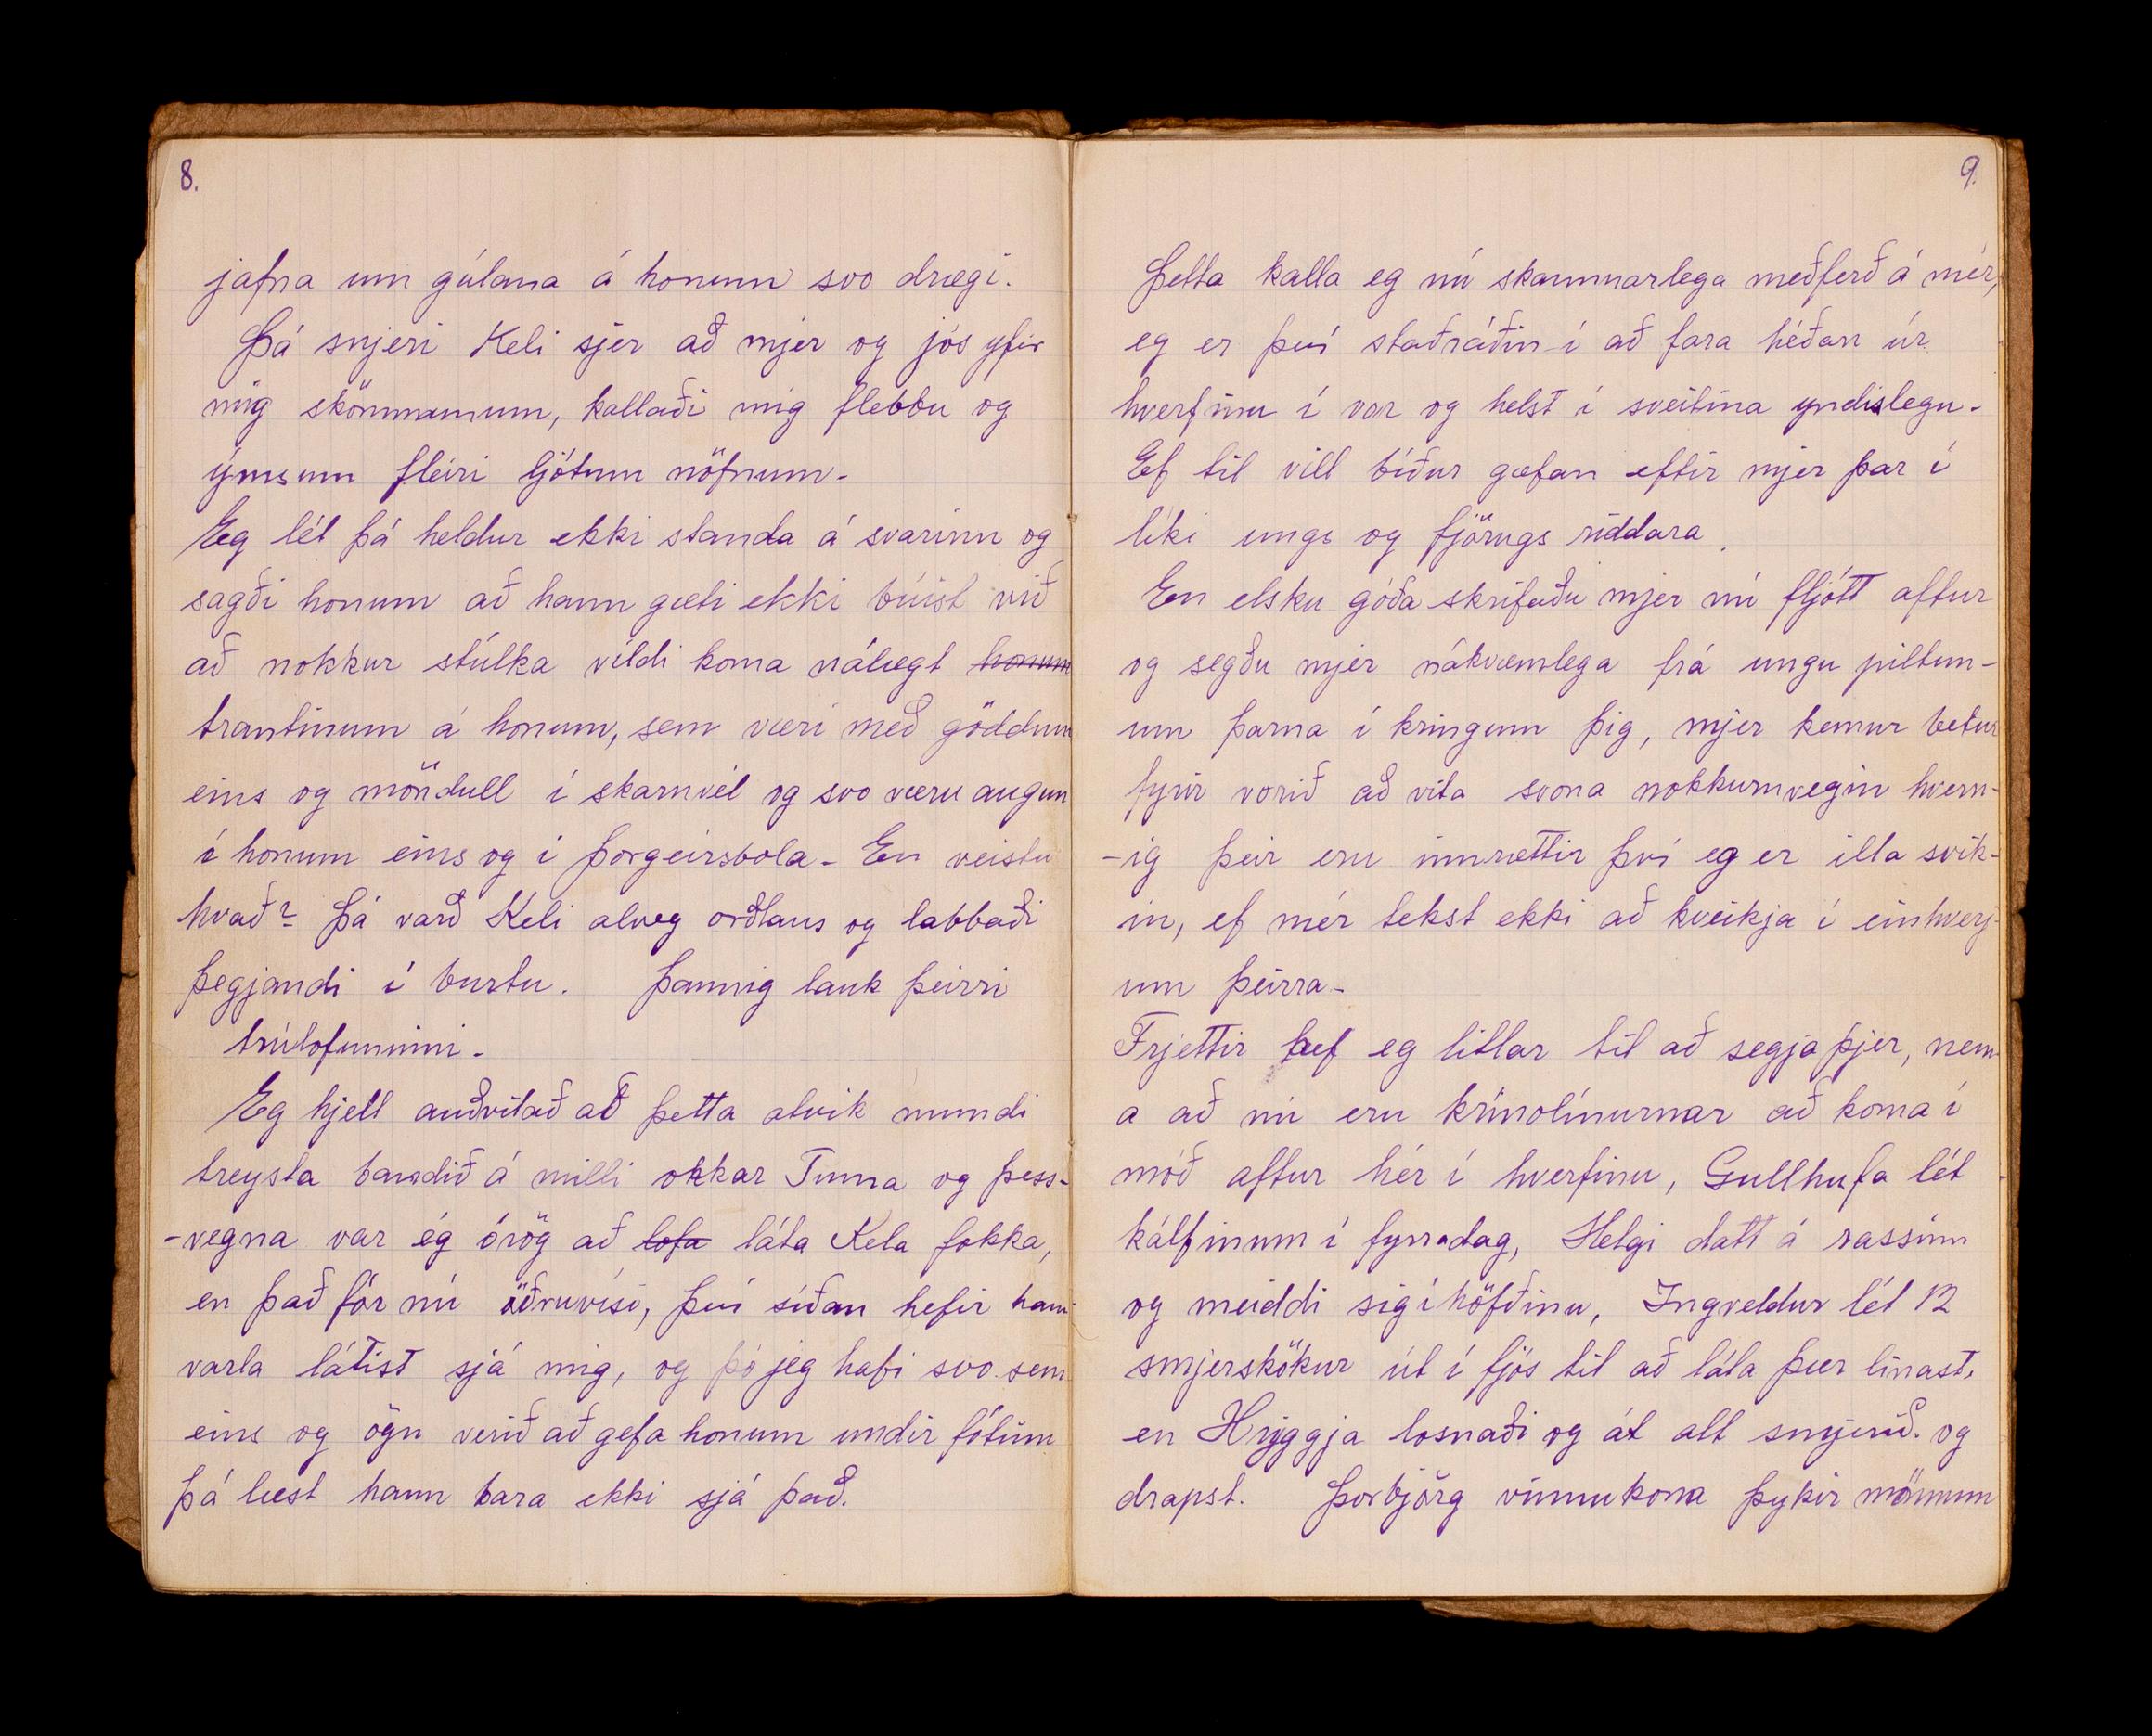 8.
jafna um gúlana á honum svo drægi.
Þá snjeri Keli sjer að mjer og jós yfir
mig skömmunum, kallaði mig flebbu og
ýmsum fleiri ljótum nöfnum.
Eg lét þá heldur ekki standa á svarinu og
sagði honum að hann gæti ekki búist við
að nokkur stúlka vildi koma nálægt honum
trantinum á honum, sem væri með göddum
eins og möndull í skarnvél og svo væru augun
í honum eins og í Þorgeirsbola. En veistu
hvað? Þá varð Keli alveg orðlaus og labbaði
þegjandi í burtu. Þannig lauk þeirri
trúlofuninni.
Eg hjelt auðvitað að þetta atvik mundi
treysta bandið á milli okkar Tuma og þess-
-vegna var ég óróg að lofa láta Kela fokka,
en það fór nú öðruvísi, því síðan hefir hann
varla látist sjá mig, og þó jeg hafi svo sem
eins og ögn verið að gefa honum undir fótinn
þá læst hann bara ekki sjá það.
9.
Þetta kalla eg nú skammarlega meðferð á mér,
eg er því staðráðin í að fara héðan úr
hverfinu í vor og helst í sveitina yndislegu.
Ef til vill bíður gæfan eftir mjer þar í
líki ungs og fjörugs riddara.
En elsku góða skrifaðu mjer nú fljótt aftur
og segðu mjer nákvæmlega frá ungu piltun-
um þarna í kringum þig, mjer kemur betur
fyrir vorið að vita svona nokkurnvegin hvern-
-ig þeir eru innrættir því eg er illa svik-
in, ef mér tekst ekki að kveikja í einhverj-
um þeirra.
Frjettir hef eg litlar til að segja þjer, nem-
a að nú eru krínolínurnar að koma í
móð aftur hér í hverfinu, Gullhufa lét
kálfinum í fyrradag, Helgi datt á rassinn
og meiddi sig í höfðinu, Ingveldur lét 12
smjerskökur út í fjós til að láta þær linast,
en Hryggja losnaði og át alt smjerið. og
drapst. Þorbjörg vinnukona þykir mönnum